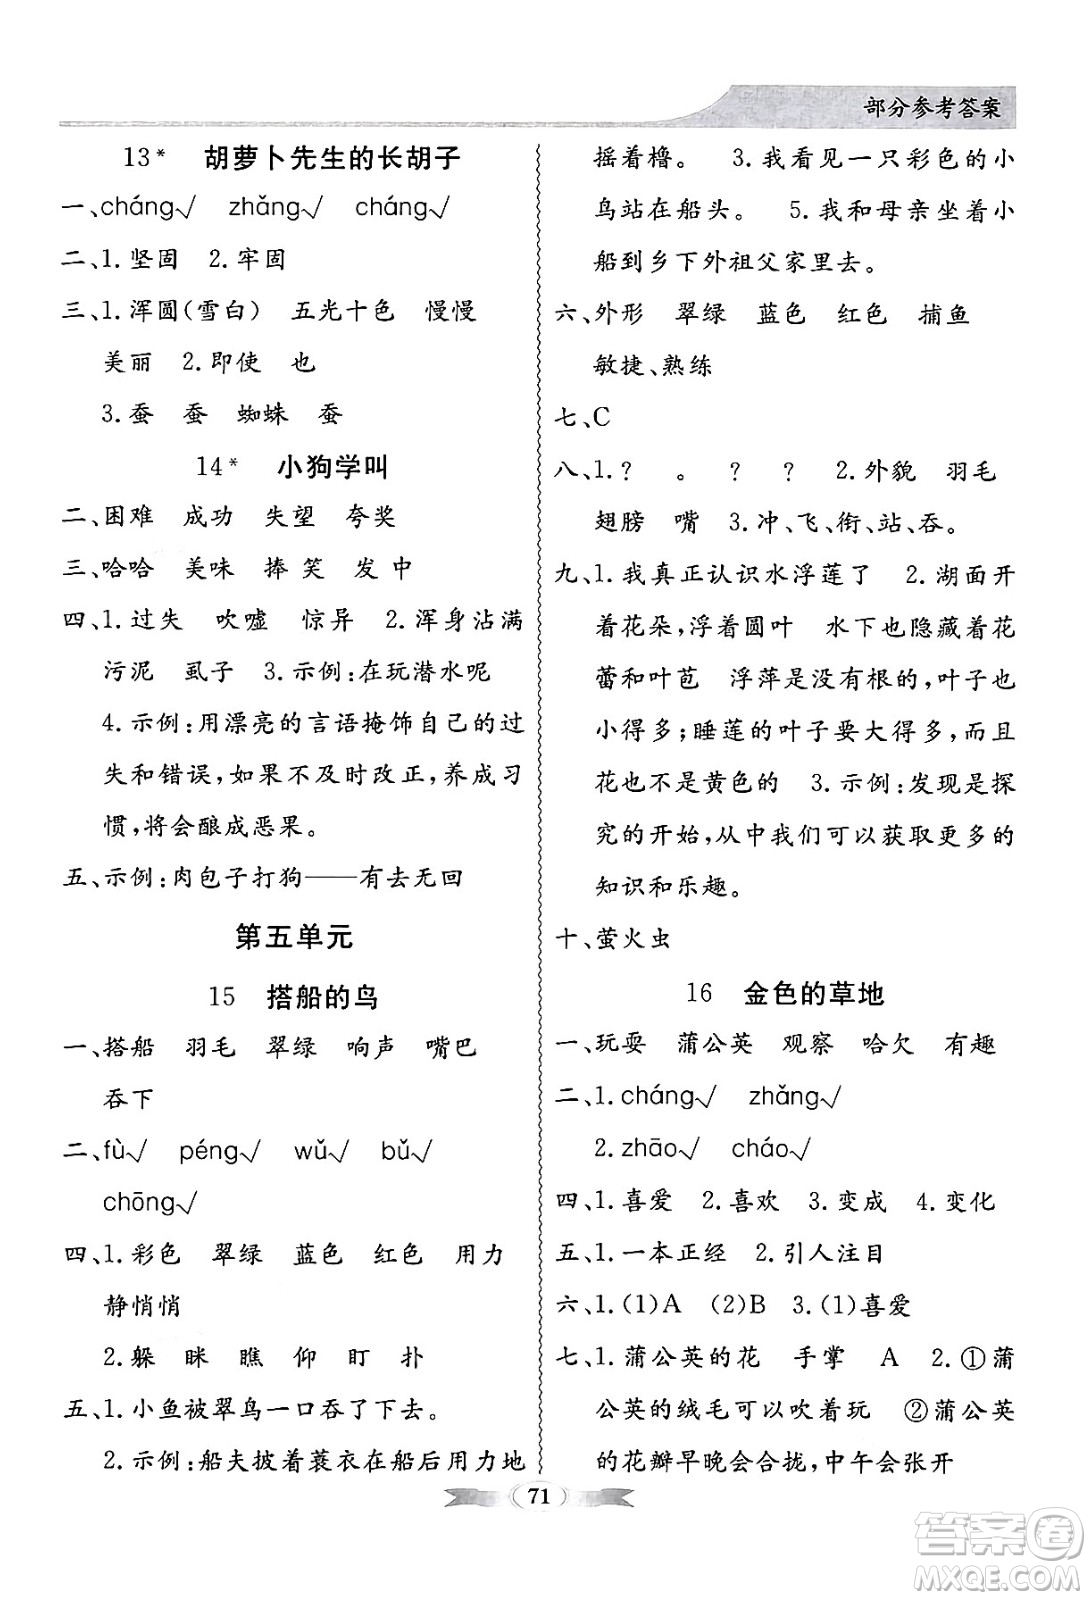 部分参考答案
13* 胡萝卜先生的长胡子
一、cháng√ zhǎng√ cháng√
二、1.坚固 2.牢固
三、1.浑圆(雪白) 五光十色 慢慢
美丽 2.即使 也
3.蚕 蚕 蜘蛛 蚕
14* 小狗学叫
二、困难 成功 失望 夸奖
三、哈哈 美味 捧 笑 发 中
四、1.过失 吹嘘 惊异 2.浑身沾满
污泥 虱子 3.示例:在玩潜水呢
4.示例:用漂亮的言语掩饰自己的过
失和错误,如果不及时改正,养成习
惯,将会酿成恶果。
五、示例:肉包子打狗——有去无回
第五单元
15 搭船的鸟
一、搭船 羽毛 翠绿 响声 嘴巴
吞下
二、fù√ péng√ wǔ√ bǔ√
chōng√
四、1.彩色 翠绿 蓝色 红色 用力
静悄悄
2.躲 眯 瞧 仰 盯 扑
五、1.小鱼被翠鸟一口吞了下去。
2.示例:船夫披着蓑衣在船后用力地
摇着橹。 3.我看见一只彩色的小
鸟站在船头。 5.我和母亲坐着小
船到乡下外祖父家里去。
六、外形 翠绿 蓝色 红色 捕鱼
敏捷、熟练
七、C
八、1.? 。 ? ? 2.外貌 羽毛
翅膀 嘴 3.冲、飞、衔、站、吞。
九、1.我真正认识水浮莲了 2.湖面开
着花朵,浮着圆叶 水下也隐藏着花
蕾和叶苞 浮萍是没有根的,叶子也
小得多;睡莲的叶子要大得多,而且
花也不是黄色的 3.示例:发现是探
究的开始,从中我们可以获取更多的
知识和乐趣。
十、萤火虫
16 金色的草地
一、玩耍 蒲公英 观察 哈欠 有趣
二、1.cháng√ zhǎng√
2.zhāo√ cháo√
四、1.喜爱 2.喜欢 3.变成 4.变化
五、1.一本正经 2.引人注目
六、1.(1)A (2)B 3.(1)喜爱
七、1.蒲公英的花 手掌 A 2.①蒲
公英的绒毛可以吹着玩 ②蒲公英
的花瓣早晚会合拢,中午会张开
71
答案圈
MXQE.COM